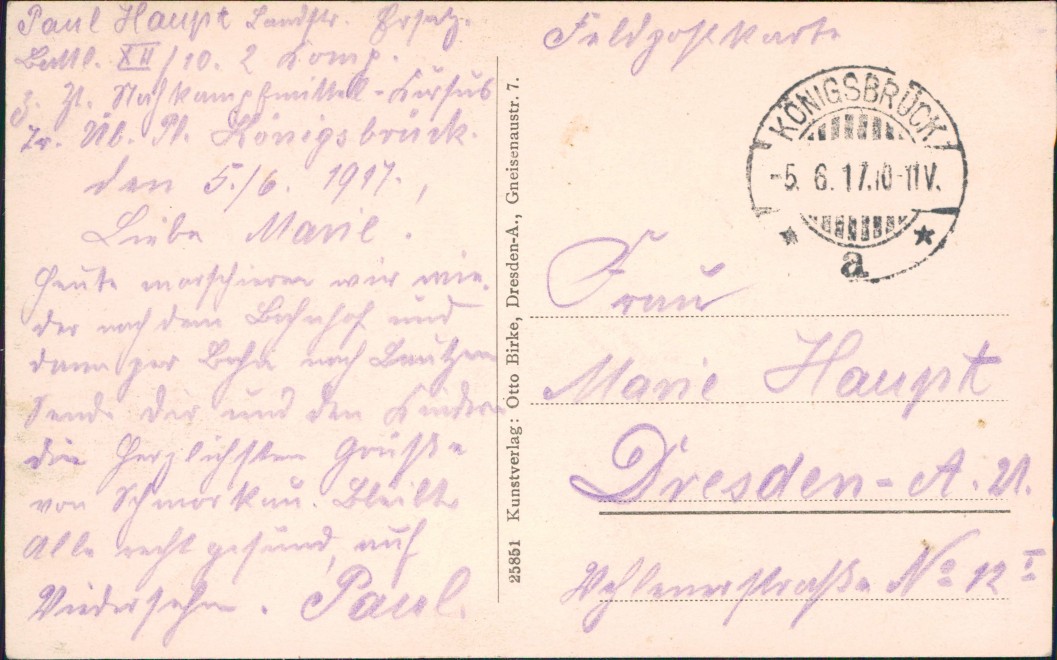 Paul Haupt Landstr. Ersatz-
Battl. XII/10. 2 Komp.
z. Zt. Nahkampfmittel-Kursus
Tr. Üb. Pl. Königsbrück.
den 5./6. 1917.,
Liebe Marie.
Heute marschieren wir wie-
der nach dem Bahnhof und
dann per Bahn nach Bautzen
Sende Dir und den Kindern
die herzlichsten Grüße
von Schmorkau. Bleibt
Alle recht gesund, auf
Wiedersehn. Paul.
25851 Kunstverlag: Otto Birke, Dresden-A., Gneisenaustr. 7.
Feldpostkarte
KÖNIGSBRÜCK
-5. 6. 17. 10-11V.
* a *
Frau
Marie Haupt
Dresden-A. 21.
No 12 I